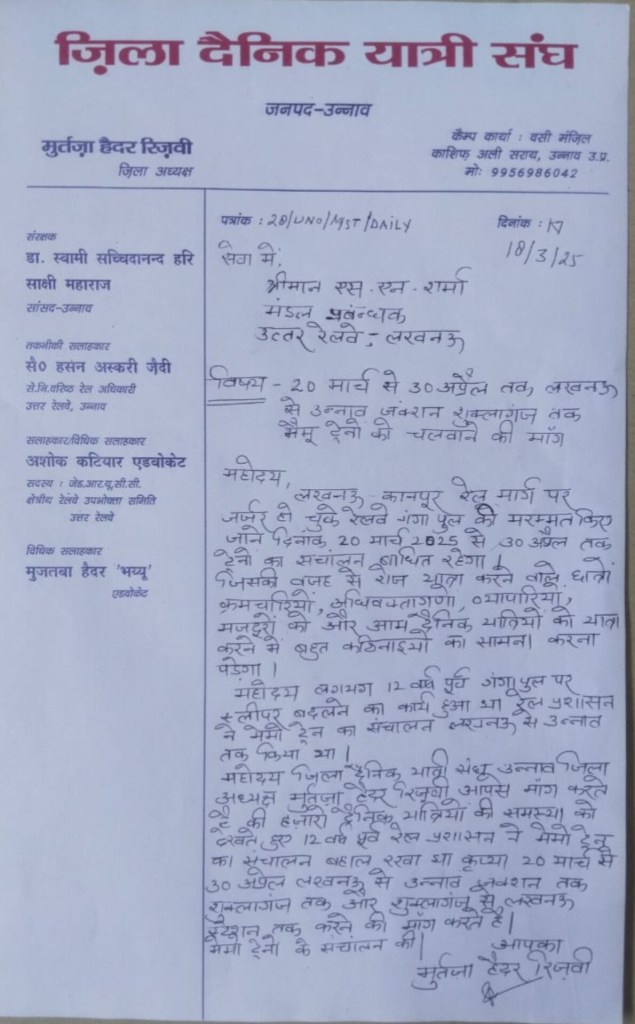 ज़िला दैनिक यात्री संघ
जनपद-उन्नाव
मुर्तज़ा हैदर रिज़वी
ज़िला अध्यक्ष
कैम्प कार्या : वसी मंज़िल
काशिफ़ अली सराय, उन्नाव उ.प्र.
मो: 9956986042
संरक्षक
डा. स्वामी सच्चिदानन्द हरि
साक्षी महाराज
सांसद-उन्नाव
तकनीकी सलाहकार
सै० हसन अस्करी ज़ैदी
से.नि.वरिष्ठ रेल अधिकारी
उत्तर रेलवे, उन्नाव
सलाहकार/विधिक सलाहकार
अशोक कटियार एडवोकेट
सदस्य : जेड.आर.यू.सी.सी.
क्षेत्रीय रेलवे उपभोक्ता समिति
उत्तर रेलवे
विधिक सलाहकार
मुजतबा हैदर 'भय्यू'
एडवोकेट
पत्रांक : 28/UNO/MST/DAILY
दिनांक :
18/3/25
सेवा में,
श्रीमान एस. एन. शर्मा
मंडल प्रबन्धक
उत्तर रेलवे, लखनऊ
विषय - 20 मार्च से 30 अप्रैल तक लखनऊ
से उन्नाव जंक्शन शुक्लागंज तक
मैमू ट्रेनो को चलवाने की माँग
महोदय,
लखनऊ - कानपुर रेल मार्ग पर
जर्जर हो चुके रेलवे गंगा पुल की मरम्मत किए
जाने दिनांक 20 मार्च 2025 से 30 अप्रैल तक
ट्रेनो का संचालन बाधित रहेगा।
जिसकी वजह से रोज यात्रा करने वाले छात्रों
क्रमचारियों, अधिवक्तागणो, व्यापारियो,
मजदूरों को और आम दैनिक यात्रियों को यात्रा
करने में बहुत कठिनाइयों का सामना करना
पड़ेगा।
महोदय लगभग 12 वर्ष पूर्व गंगा पुल पर
स्लीपर बदलने का कार्य हुआ था रेल प्रशासन
ने मेमो ट्रेन का संचालन लखनऊ से उन्नाव
तक किया था।
महोदय जिला दैनिक यात्री संघ उन्नाव जिला
अध्यक्ष मुर्तजा हैदर रिज़वी आपसे माँग करते
है की हजारो दैनिक यात्रियों की समस्या को
देखते हुए 12 वर्ष पूर्व रेल प्रशासन ने मेमो ट्रेन
का संचालन बहाल रखा था कृप्या 20 मार्च से
30 अप्रैल लखनऊ से उन्नाव जंक्शन तक
शुक्लागंज तक और शुक्लागंज से लखनऊ
स्टेशन तक करने की माँग करते है।
मेमो ट्रेनो के संचालन की।
आपका
मुर्तजा हैदर रिज़वी